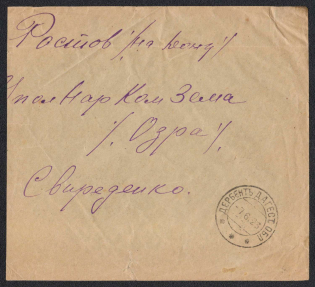 Ростов /на Дону/
УполНарКомЗема
/Озра/
Свириденко.
ДЕРБЕНТЪ ДАГЕСТ. ОБЛ